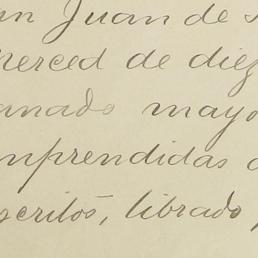 an Juan de
merced de diez
anado mayo
omprendidas
scritos, librado,